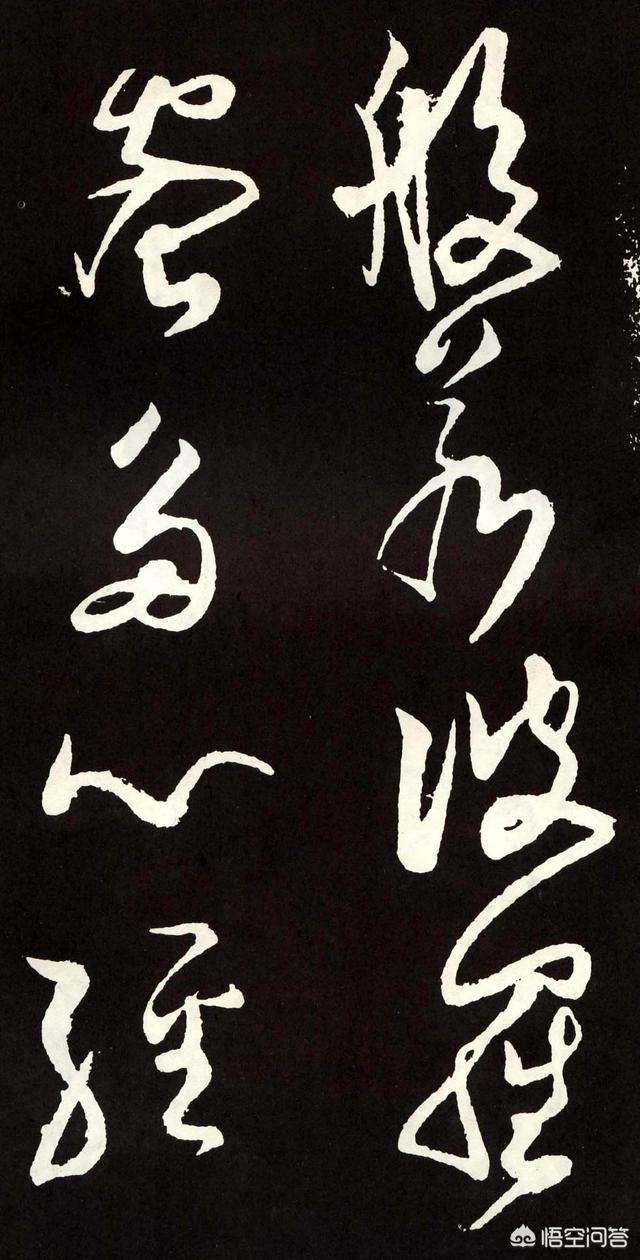 般若波羅
蜜多心經
悟空问答